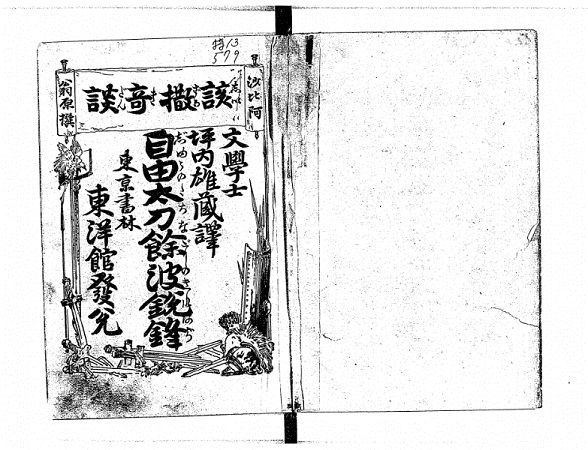 特13
579
沙比阿
該撒奇談
翁原撰
文學士
坪内雄蔵譯
自由太刀餘波鋭鋒
東京書林
東洋館發兌